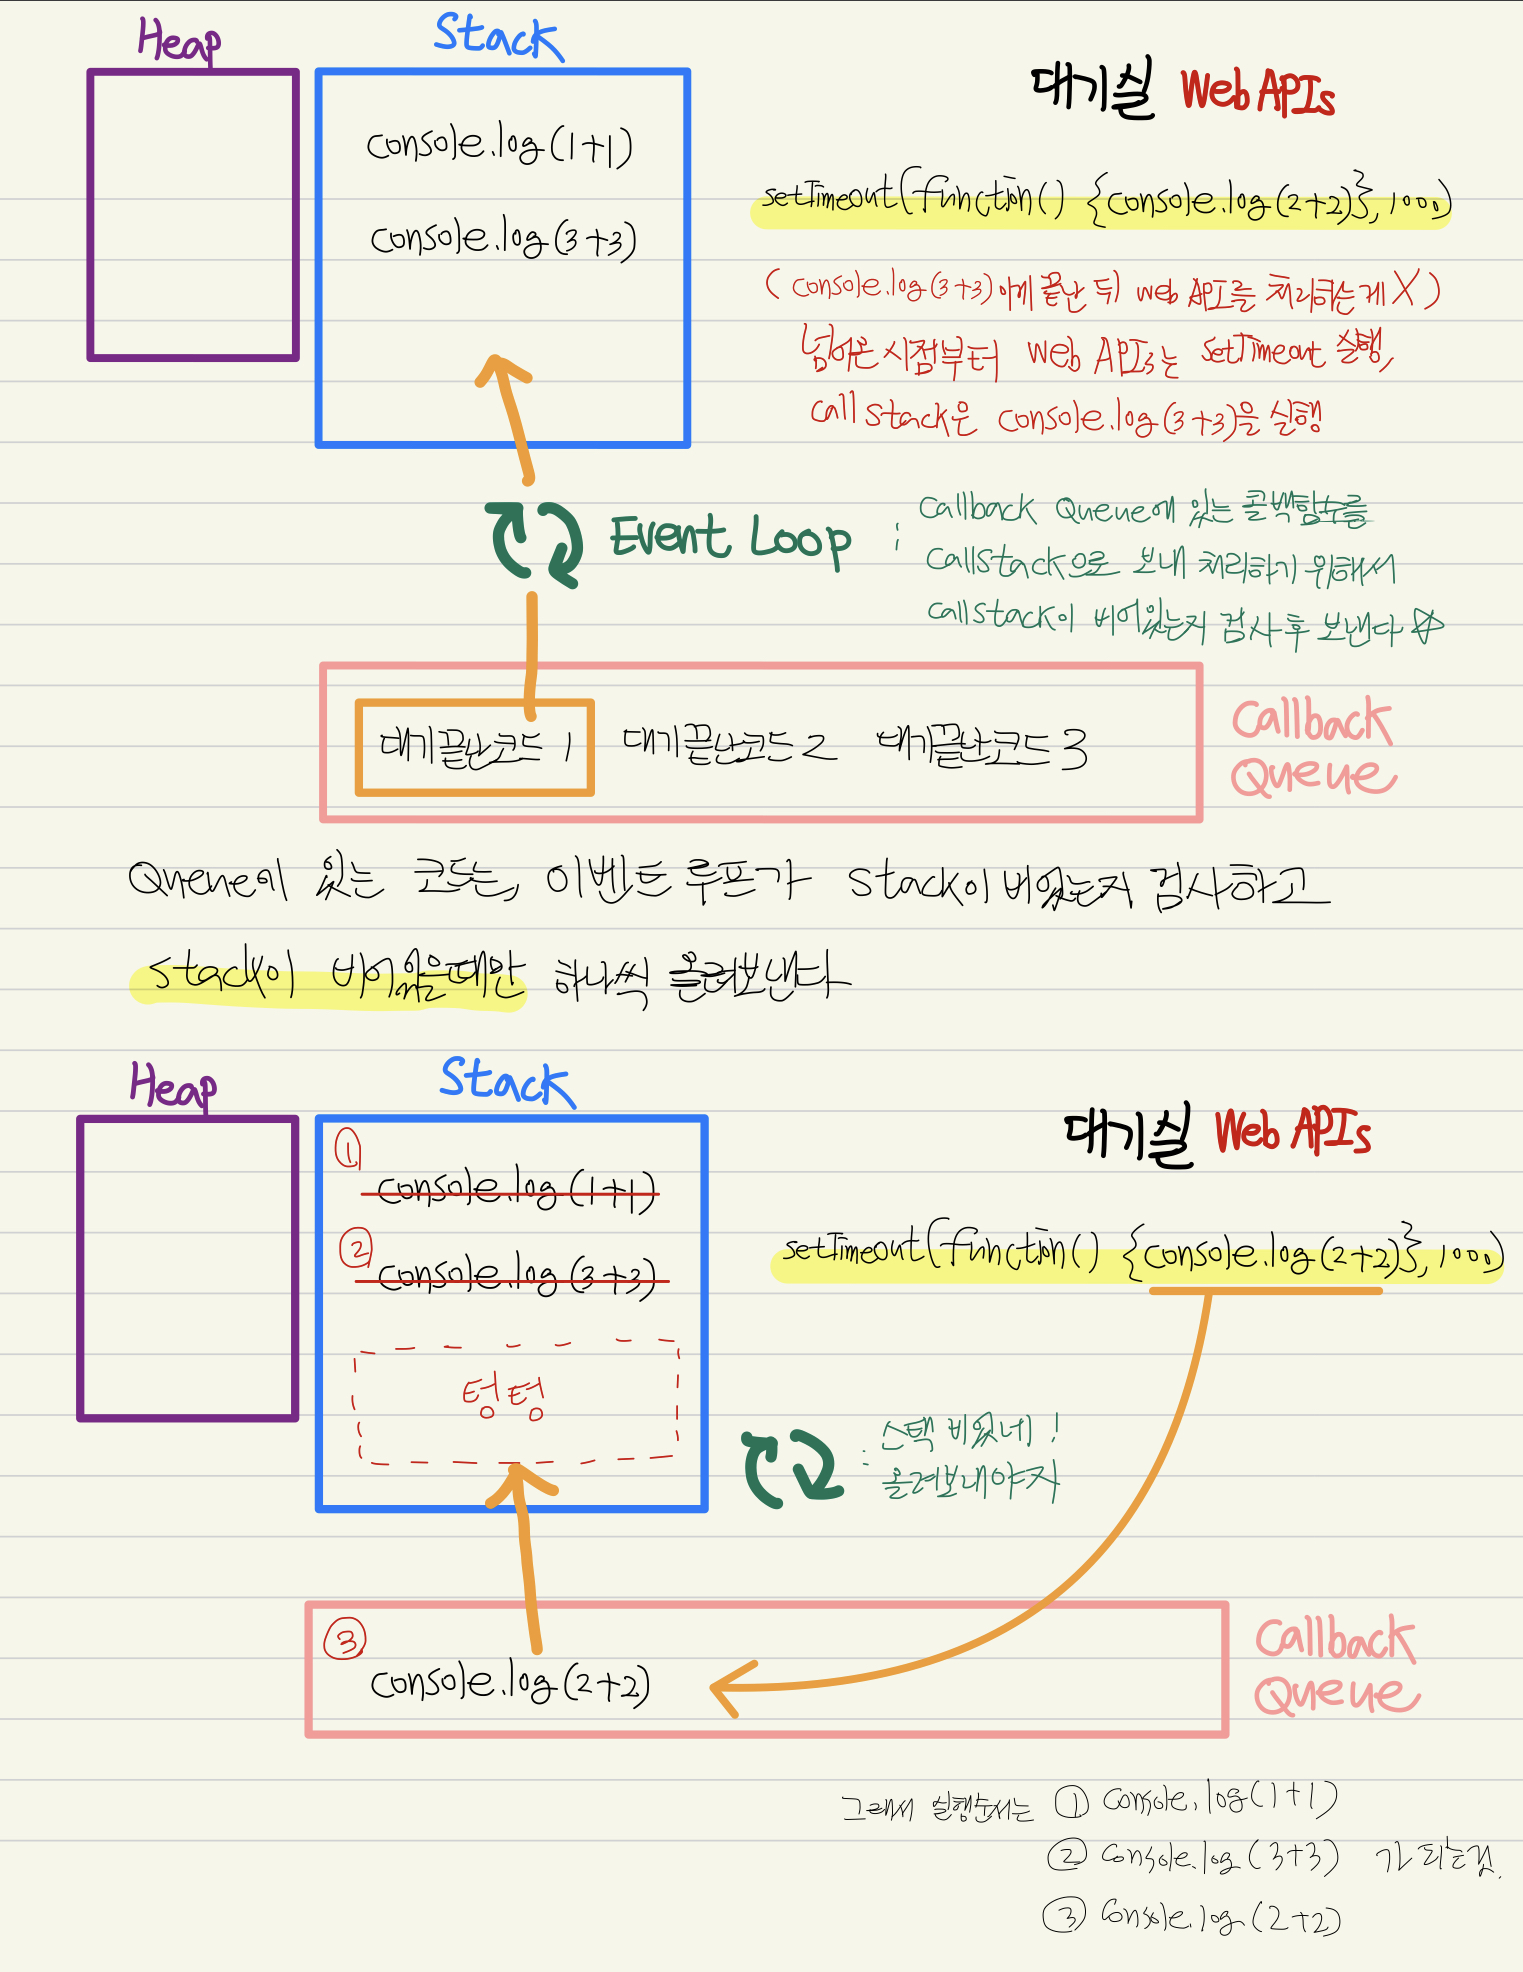 Heap
Stack
대기실 Web APIs
console.log(1+1)
console.log(3+3)
setTimeout(function() {console.log(2+2)}, 1000)
(console.log(3+3)이게 끝난 뒤 web API를 처리하는게 X)
넘어온 시점부터 web APIs는 setTimeout 실행,
call stack은 console.log(3+3)을 실행
Event Loop :
Callback Queue에 있는 콜백함수를
Callstack으로 보내 처리하기 위해서
callstack이 비어있는지 검사 후 보낸다 ☆
대기끝난코드 1 대기끝난코드 2 대기끝난코드 3
Callback
Queue
Queue에 있는 코드는, 이벤트 루프가 Stack이 비었는지 검사하고
stack이 비어있을때만 하나씩 올려보낸다
Heap
Stack
대기실 Web APIs
①
console.log(1+1)
②
console.log(3+3)
setTimeout(function() {console.log(2+2)}, 1000)
텅텅
: 스택 비었네!
올려보내야지
③
console.log(2+2)
Callback
Queue
그래서 실행순서는 ① console.log(1+1)
② console.log(3+3) 가 되는것.
③ console.log(2+2)